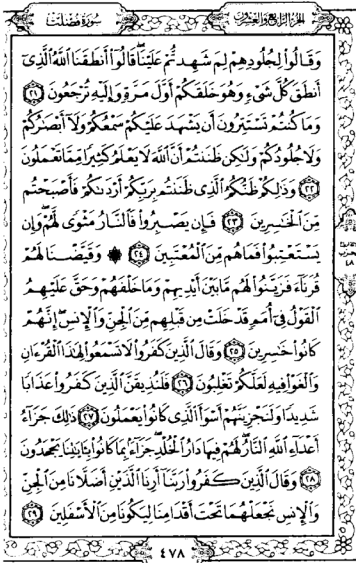 الجزء الرابع والعشرون
سورة فصلت
وَقَالُوا۟ لِجُلُودِهِمْ لِمَ شَهِدتُّمْ عَلَيْنَا ۖ قَالُوٓا۟ أَنطَقَنَا ٱللَّهُ ٱلَّذِىٓ
أَنطَقَ كُلَّ شَىْءٍ وَهُوَ خَلَقَكُمْ أَوَّلَ مَرَّةٍ وَإِلَيْهِ تُرْجَعُونَ ٢١
وَمَا كُنتُمْ تَسْتَتِرُونَ أَن يَشْهَدَ عَلَيْكُمْ سَمْعُكُمْ وَلَآ أَبْصَٰرُكُمْ
وَلَا جُلُودُكُمْ وَلَٰكِن ظَنَنتُمْ أَنَّ ٱللَّهَ لَا يَعْلَمُ كَثِيرًا مِّمَّا تَعْمَلُونَ
٢٢ وَذَٰلِكُمْ ظَنُّكُمُ ٱلَّذِى ظَنَنتُم بِرَبِّكُمْ أَرْدَىٰكُمْ فَأَصْبَحْتُم
مِّنَ ٱلْخَٰسِرِينَ ٢٣ فَإِن يَصْبِرُوا۟ فَٱلنَّارُ مَثْوًى لَّهُمْ ۖ وَإِن
يَسْتَعْتِبُوا۟ فَمَا هُم مِّنَ ٱلْمُعْتَبِينَ ٢٤ ۞ وَقَيَّضْنَا لَهُمْ
قُرَنَآءَ فَزَيَّنُوا۟ لَهُم مَّا بَيْنَ أَيْدِيهِمْ وَمَا خَلْفَهُمْ وَحَقَّ عَلَيْهِمُ
ٱلْقَوْلُ فِىٓ أُمَمٍ قَدْ خَلَتْ مِن قَبْلِهِم مِّنَ ٱلْجِنِّ وَٱلْإِنسِ ۖ إِنَّهُمْ
كَانُوا۟ خَٰسِرِينَ ٢٥ وَقَالَ ٱلَّذِينَ كَفَرُوا۟ لَا تَسْمَعُوا۟ لِهَٰذَا ٱلْقُرْءَانِ
وَٱلْغَوْا۟ فِيهِ لَعَلَّكُمْ تَغْلِبُونَ ٢٦ فَلَنُذِيقَنَّ ٱلَّذِينَ كَفَرُوا۟ عَذَابًا
شَدِيدًا وَلَنَجْزِيَنَّهُمْ أَسْوَأَ ٱلَّذِى كَانُوا۟ يَعْمَلُونَ ٢٧ ذَٰلِكَ جَزَآءُ
أَعْدَآءِ ٱللَّهِ ٱلنَّارُ ۖ لَهُمْ فِيهَا دَارُ ٱلْخُلْدِ ۖ جَزَآءًۢ بِمَا كَانُوا۟ بِـَٔايَٰتِنَا يَجْحَدُونَ
٢٨ وَقَالَ ٱلَّذِينَ كَفَرُوا۟ رَبَّنَآ أَرِنَا ٱلَّذَيْنِ أَضَلَّانَا مِنَ ٱلْجِنِّ
وَٱلْإِنسِ نَجْعَلْهُمَا تَحْتَ أَقْدَامِنَا لِيَكُونَا مِنَ ٱلْأَسْفَلِينَ ٢٩
٤٧٨